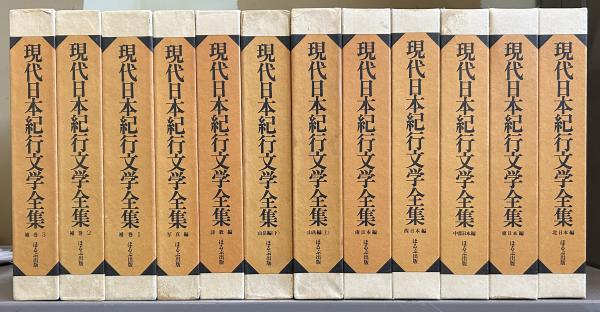 現代日本紀行文学全集
補巻3
ほるぷ出版
現代日本紀行文学全集
補巻2
ほるぷ出版
現代日本紀行文学全集
補巻1
ほるぷ出版
現代日本紀行文学全集
写真編
ほるぷ出版
現代日本紀行文学全集
詩歌編
ほるぷ出版
現代日本紀行文学全集
山岳編(下)
ほるぷ出版
現代日本紀行文学全集
山岳編(上)
ほるぷ出版
現代日本紀行文学全集
南日本編
ほるぷ出版
現代日本紀行文学全集
西日本編
ほるぷ出版
現代日本紀行文学全集
中部日本編
ほるぷ出版
現代日本紀行文学全集
東日本編
ほるぷ出版
現代日本紀行文学全集
北日本編
ほるぷ出版